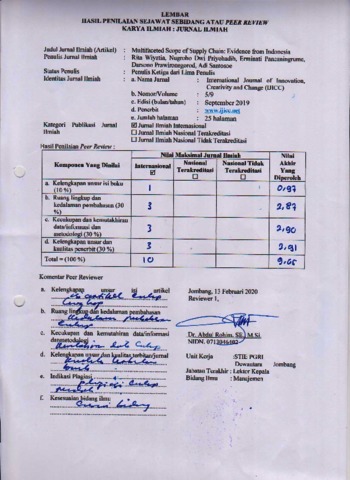 LEMBAR
HASIL PENILAIAN SEJAWAT SEBIDANG ATAU PEER REVIEW
KARYA ILMIAH : JURNAL ILMIAH
Judul Jurnal Ilmiah (Artikel) : Multifaceted Scope of Supply Chain: Evidence from Indonesia
Penulis Jurnal Ilmiah : Rita Wiyetia, Nugroho Dwi Priyohadi, Erminati Pancaningrum,
Darsono Prawironegoro, Adi Santoso
Status Penulis : Penulis Ketiga dari Lima Penulis
Identitas Jurnal Ilmiah : a. Nama Jurnal : International Journal of Innovation,
Creativity and Change (IJICC)
b. Nomor/Volume : 5/9
c. Edisi (bulan/tahun) : September 2019
d. Penerbit : www.ijicc.net
e. Jumlah halaman : 25 halaman
Kategori Publikasi Jurnal Ilmiah : ☑ Jurnal Ilmiah Internasional
☐ Jurnal Ilmiah Nasional Terakreditasi
☐ Jurnal Ilmiah Nasional Tidak Terakreditasi
Hasil Penilaian Peer Review :
Komponen Yang Dinilai
Nilai Maksimal Jurnal Ilmiah
Internasional ☑
Nasional Terakreditasi ☐
Nasional Tidak Terakreditasi ☐
Nilai Akhir Yang Diperoleh
a. Kelengkapan unsur isi buku (10 %) 1 0,97
b. Ruang lingkup dan kedalaman pembahasan (30 %) 3 2,87
c. Kecukupan dan kemutakhiran data/informasi dan metodologi (30 %) 3 2,90
d. Kelengkapan unsur dan kualitas penerbit (30 %) 3 2,91
Total = (100 %) 10 9,65
Komentar Peer Reviewer
a. Kelengkapan unsur isi artikel
b. Ruang lingkup dan kedalaman pembahasan
c. Kecukupan dan kemutahiran data/informasi
dan metodologi
d. Kelengkapan unsur dan kualitas terbitan/jurnal
e. Indikasi Plagiasi
f. Kesesuaian bidang ilmu
Jombang, 13 Februari 2020
Reviewer 1,
Dr. Abdul Rohim, SE., M.Si.
Unit Kerja : STIE PGRI
Dewantara Jombang
Jabatan Terakhir : Lektor Kepala
Bidang Ilmu : Manajemen